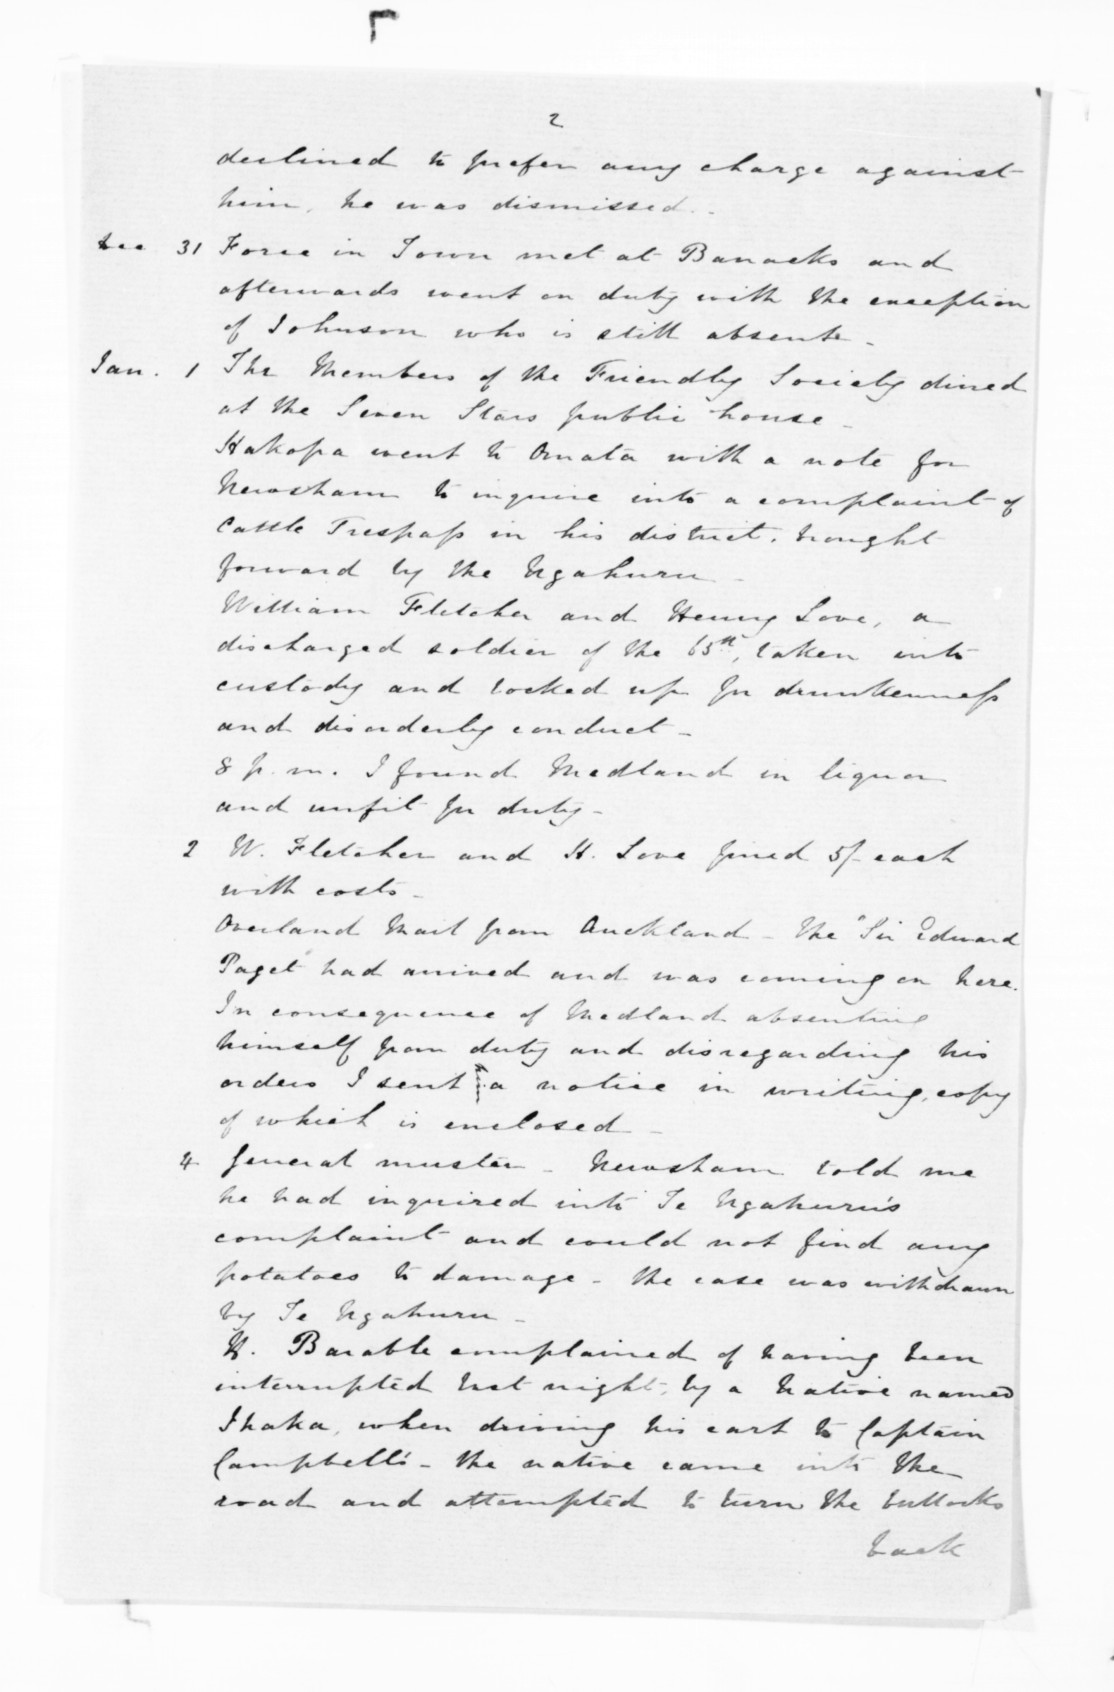 2
declined to prefer any charge against
him, he was dismissed.
Dec 31 Force in Town met at Barracks and
afterwards went on duty with the exception
of Johnson who is still absente.
Jan. 1 The Members of the Friendly Society dined
at the Seven Stars public house.
Hakopa went to Omata with a note for
Newsham to inquire into a complaint of
Cattle Trespass in his district, brought
forward by the Ngahuru
William Fletcher and Henry Love, a
discharged soldier of the 65th, taken into
custody and locked up for drunkenness
and disorderly conduct
8 p.m. I found Medland in liquor
and unfit for duty
2 W. Fletcher and H. Love fined 5/- each
with costs
Overland Mail from Auckland - the "Sir Edward
Paget" had arrived and was coming on here.
In consequence of Medland absenting
himself from duty and disregarding his
orders I sent a notice in writing, copy
of which is enclosed
4 General muster - Newsham told me
he had inquired into Te Ngahuru's
complaint and could not find any
potatoes to damage - the case was withdrawn
by Te Ngahuru
H. Barable complained of having been
interrupted last night, by a Native named
Ihaka, when driving his cart to Captain
Campbell's - the native came into the
road and attempted to turn the bullocks
back